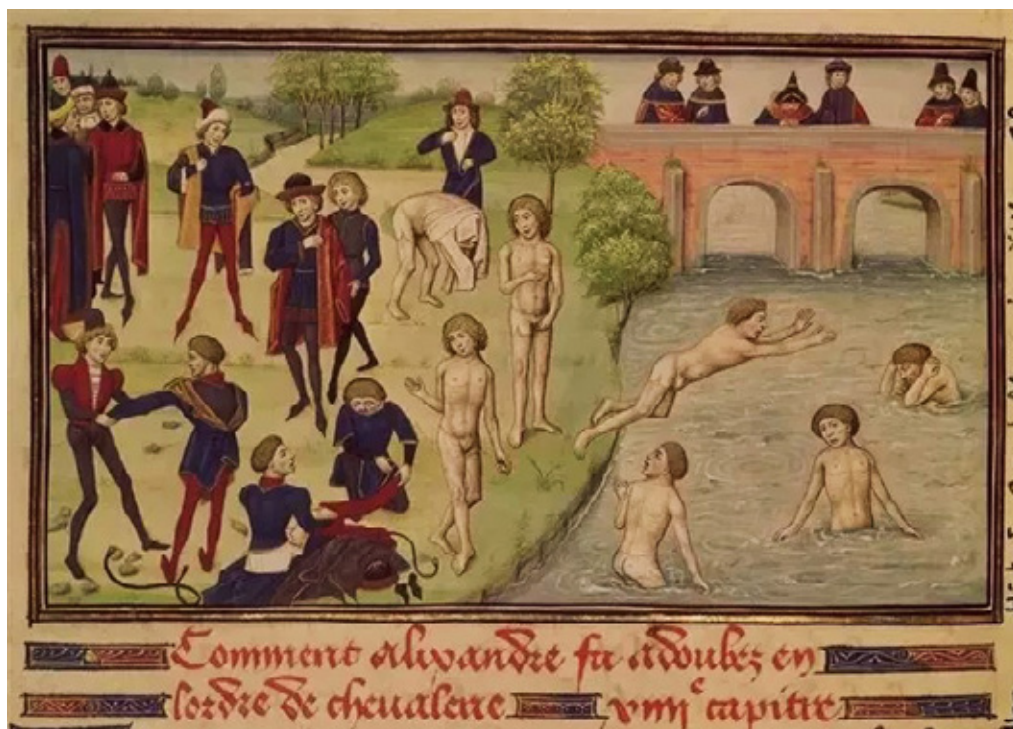 Comment alixandre fu adoubez en
lordre de cheualerie xviii^e capitre